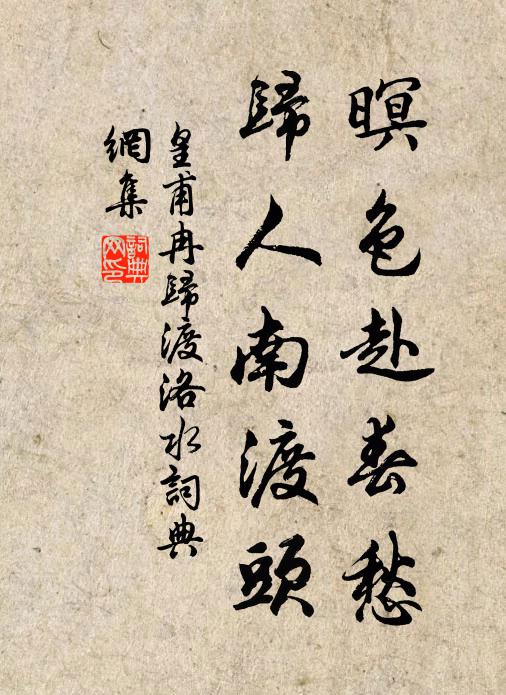 暝色赴春愁
歸人南渡頭
皇甫冉歸渡洛水詞典
網集
詞典
网印